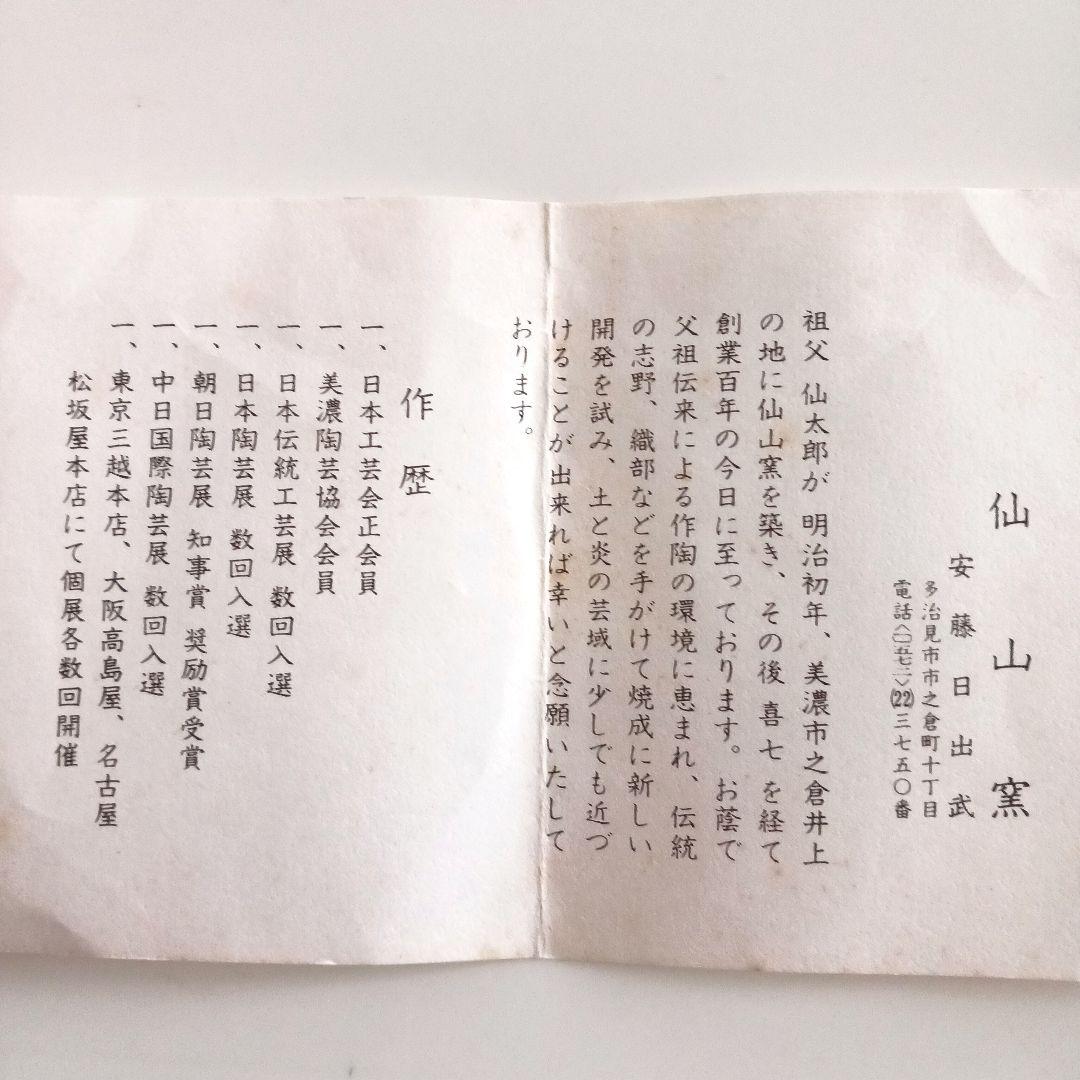 仙山窯
安藤日出武
多治見市市之倉町十丁目
電話〈〇五七二〉(22)三七五〇番
祖父 仙太郎が 明治初年、美濃市之倉井上
の地に仙山窯を築き、その後 喜七 を経て
創業百年の今日に至っております。お蔭で
父祖伝来による作陶の環境に恵まれ、伝統
の志野、織部などを手がけて焼成に新しい
開発を試み、土と炎の芸域に少しでも近づ
けることが出来れば幸いと念願いたして
おります。
作歴
一、日本工芸会正会員
一、美濃陶芸協会会員
一、日本伝統工芸展 数回入選
一、日本陶芸展 数回入選
一、朝日陶芸展 知事賞 奨励賞受賞
一、中日国際陶芸展 数回入選
一、東京三越本店、大阪高島屋、名古屋
松坂屋本店にて個展各数回開催